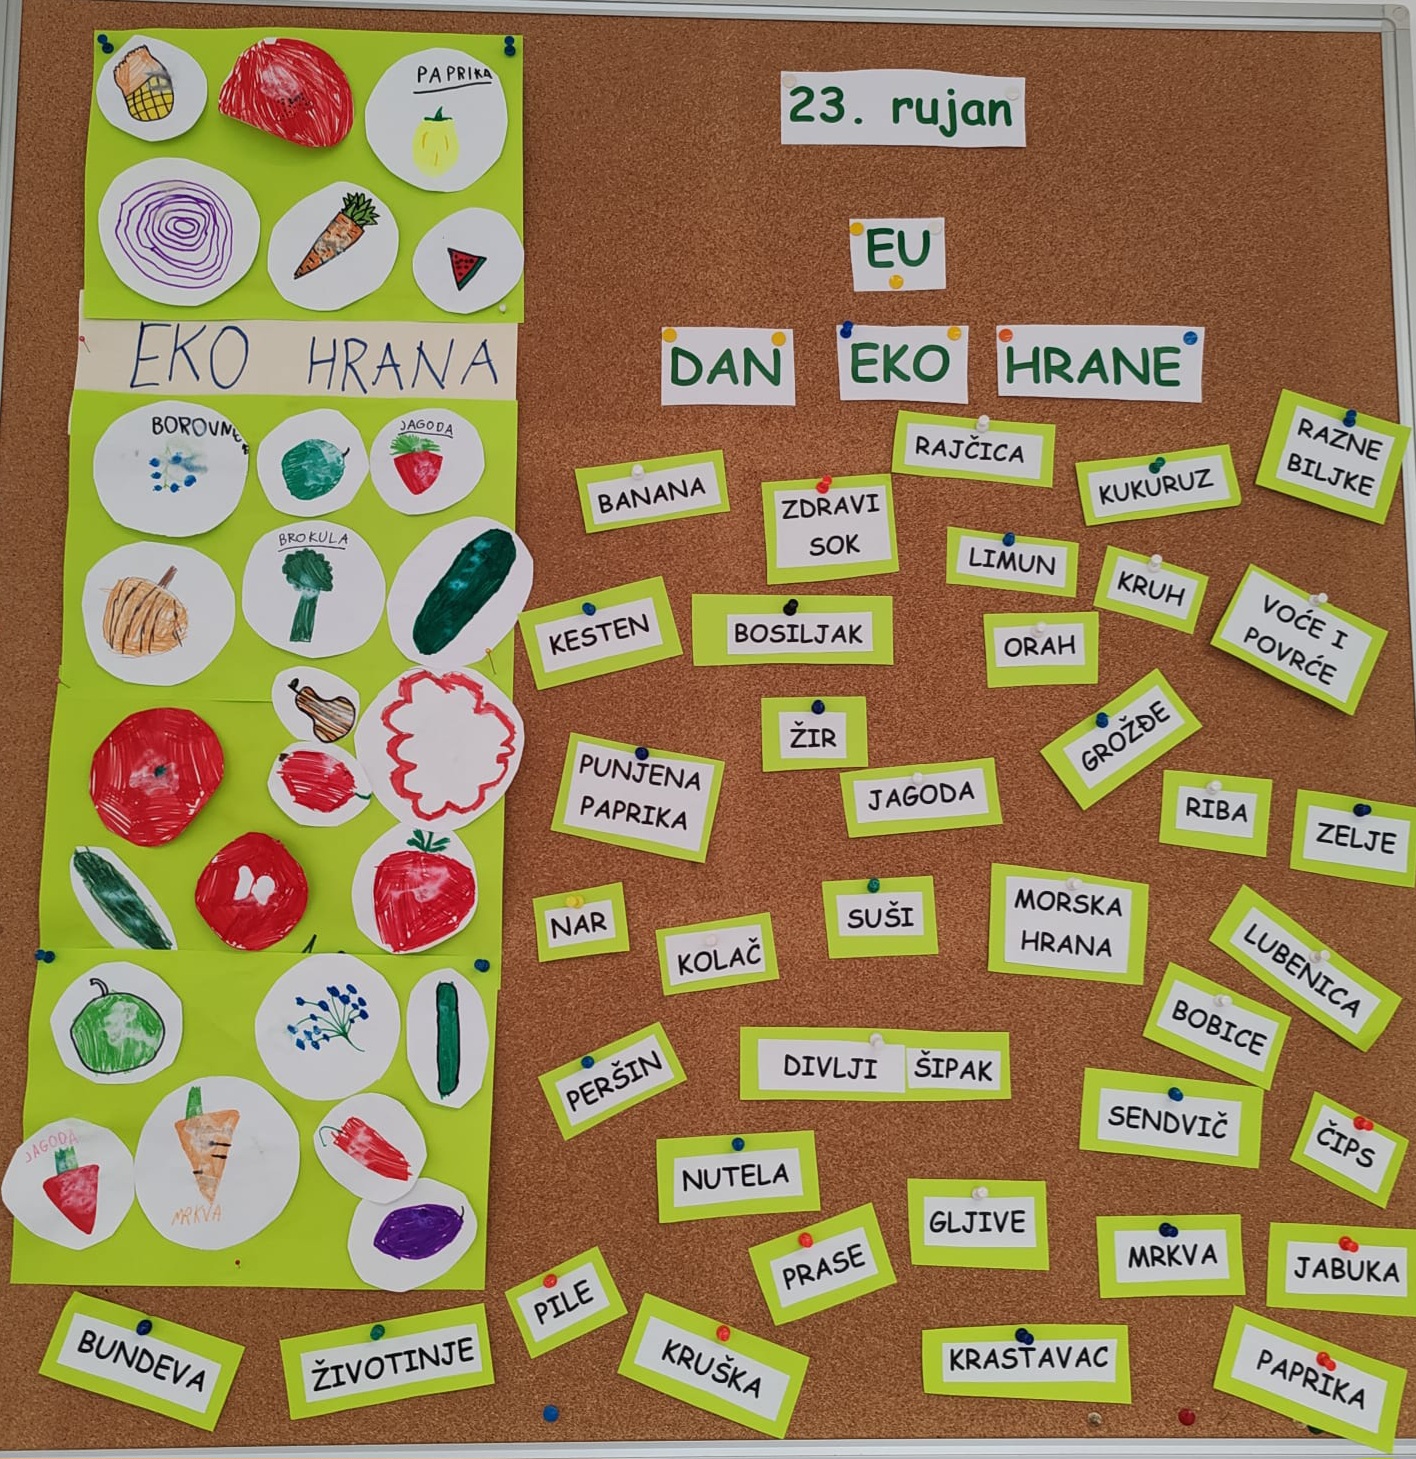 PAPRIKA
EKO HRANA
JAGODA
BROKULA
JAGODA
MRKVA
23. rujan
EU
DAN EKO HRANE
RAJČICA
RAZNE
BILJKE
BANANA
ZDRAVI
SOK
KUKURUZ
LIMUN
KRUH
VOĆE I
POVRĆE
KESTEN
BOSILJAK
ORAH
ŽIR
GROŽĐE
PUNJENA
PAPRIKA
JAGODA
RIBA
ZELJE
NAR
KOLAČ
SUŠI
MORSKA
HRANA
LUBENICA
BOBICE
PERŠIN
DIVLJI ŠIPAK
SENDVIČ
ČIPS
NUTELA
GLJIVE
PRASE
MRKVA
JABUKA
PILE
BUNDEVA
ŽIVOTINJE
KRUŠKA
KRASTAVAC
PAPRIKA